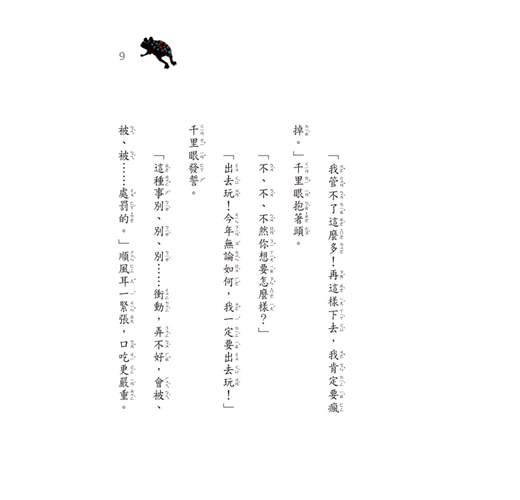 「我管不了這麼多！再這樣下去，我肯定要瘋
掉。」千里眼抱著頭。
「不、不、不然你想要怎麼樣？」
「出去玩！今年無論如何，我一定要出去玩！」
千里眼發誓。
「這種事別、別、別……衝動，弄不好，會被、
被、被……處罰的。」順風耳一緊張，口吃更嚴重。
9